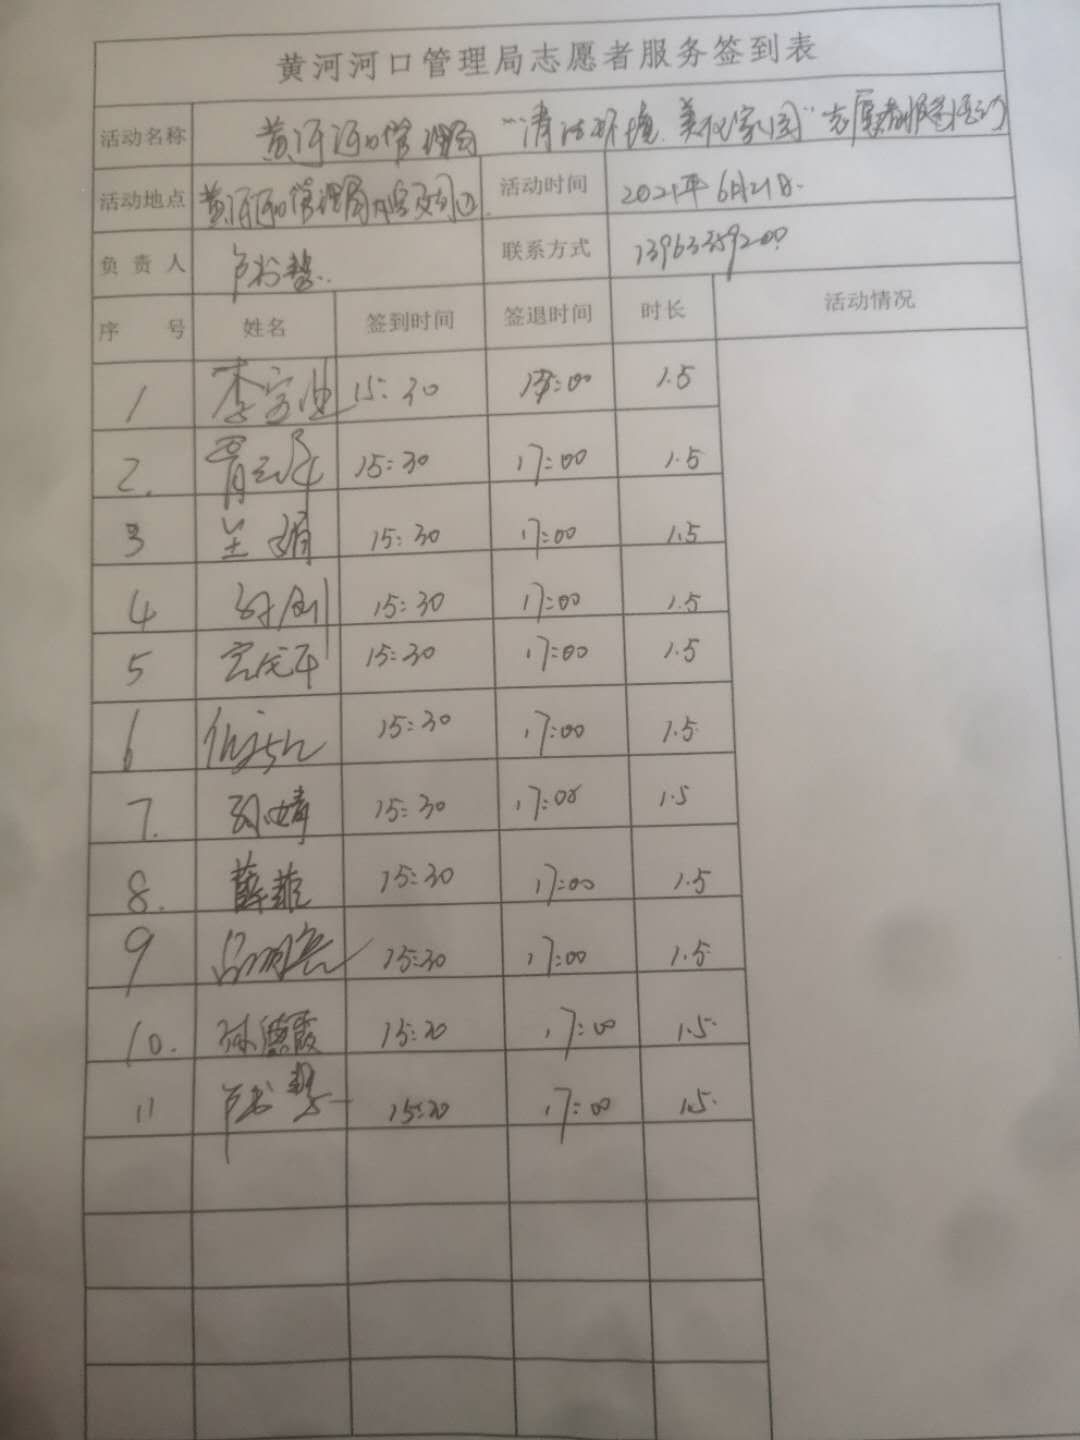 黄河河口管理局志愿者服务签到表
活动名称 黄河河口管理局“清洁环境、美化家园”志愿者服务活动
活动地点 黄河河口管理局机关及周边 活动时间 2021年6月21日.
负责人 联系方式
序号 姓名 签到时间 签退时间 时长 活动情况
1 15:30 17:00 1.5
2. 15:30 17:00 1.5
3 王娟 15:30 17:00 1.5
4 15:30 17:00 1.5
5 15:30 17:00 1.5
6 15:30 17:00 1.5
7. 孙婧 15:30 17:00 1.5
8. 薛菲 15:30 17:00 1.5
9 15:30 17:00 1.5
10. 孙德霞 15:30 17:00 1.5
11 15:30 17:00 1.5